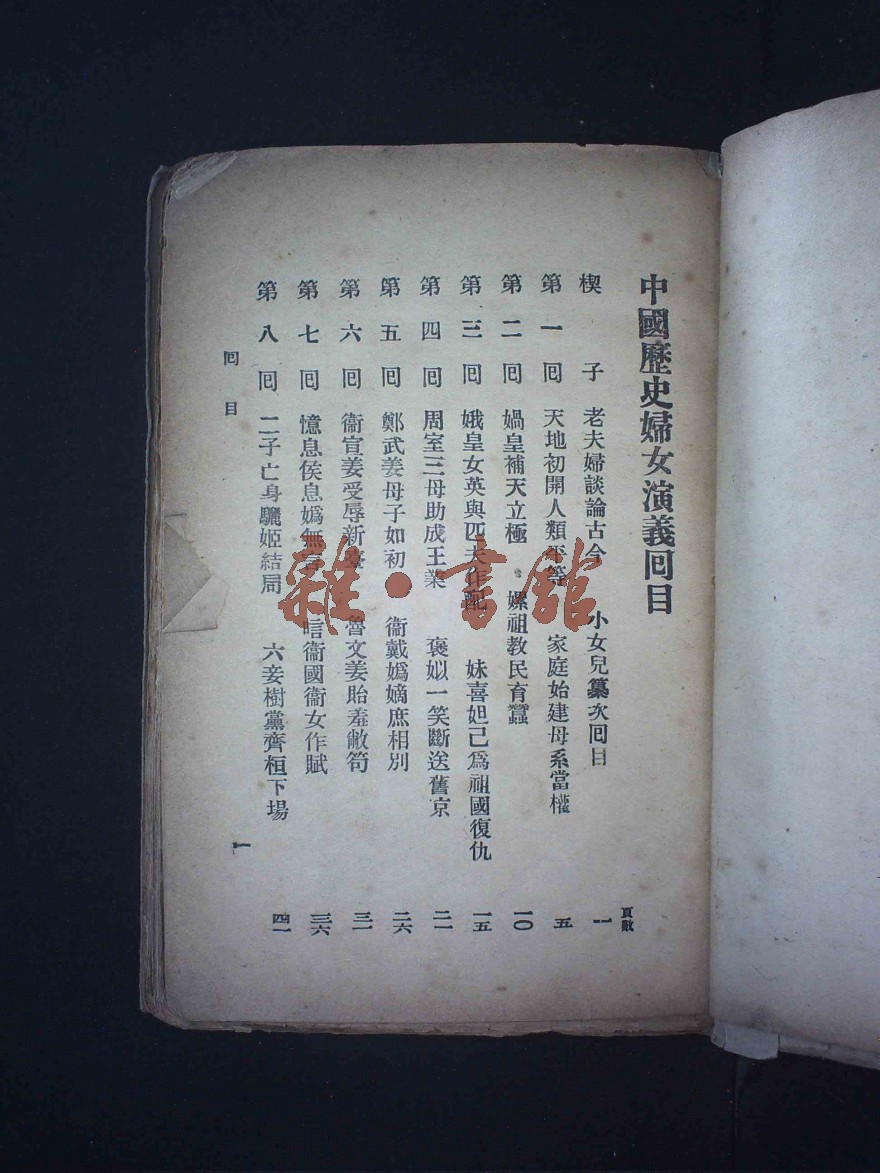 中國歷史婦女演義回目
頁數
楔子 老夫婦談論古今 小女兒纂次回目 一
第一回 天地初開人類平等 家庭始建母系當權 五
第二回 媧皇補天立極 嫘祖教民育蠶 一〇
第三回 娥皇女英與匹夫作配 妹喜妲己爲祖國復仇 一五
第四回 周室三母助成王業 褒姒一笑斷送舊京 二一
第五回 鄭武姜母子如初 衞戴嬀嫡庶相別 二六
第六回 衞宣姜受辱新臺 魯文姜貽羞敝笱 三一
第七回 憶息侯息嬀無言 唁衞國衞女作賦 三六
第八回 二子亡身驪姬結局 六妾樹黨齊桓下場 四一
回目
一
雜·書館